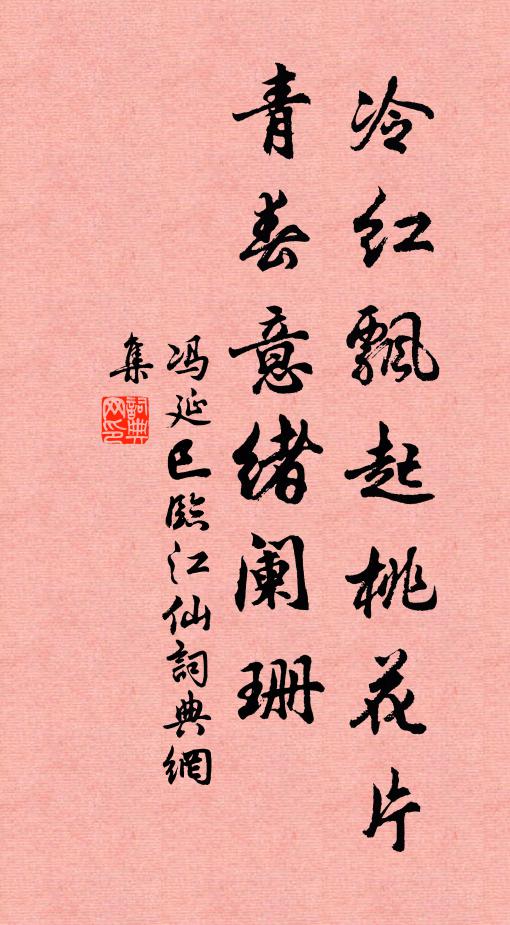 冷红飘起桃花片
青春意绪阑珊
冯延巳臨江仙詞典網
集
詞典网印